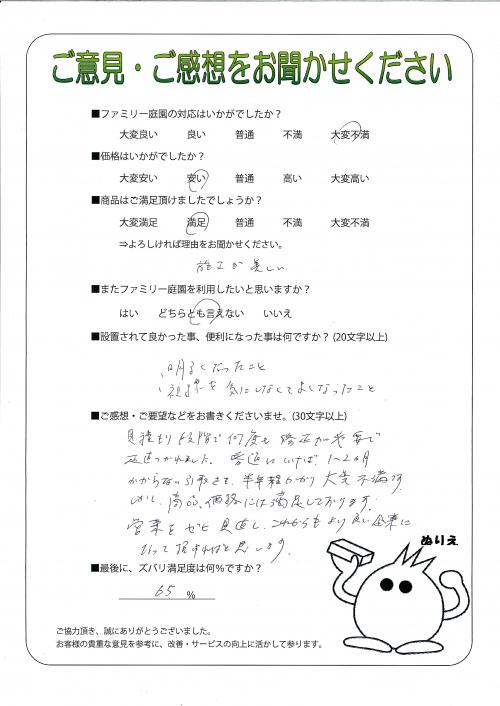 ご意見・ご感想をお聞かせください
■ファミリー庭園の対応はいかがでしたか？
大変良い 良い 普通 不満 大変不満
■価格はいかがでしたか？
大変安い 安い 普通 高い 大変高い
■商品はご満足頂けましたでしょうか？
大変満足 満足 普通 不満 大変不満
⇒よろしければ理由をお聞かせください。
施工が美しい
■またファミリー庭園を利用したいと思いますか？
はい どちらとも言えない いいえ
■設置されて良かった事、便利になった事は何ですか？(20文字以上)
明るくなったこと
視線を気にしなくてよくなったこと
■ご感想・ご要望などをお書きくださいませ。(30文字以上)
見積もり段階で何度も修正が必要で
正直つかれました。普通にいけば、1〜2ヵ月
かからない引取を、半年程かかり大変不満です。
しかし、商品、価格には満足しております。
営業をぜひ見直し、これからもより良い企業に
なって頂ければと思います。
ぬりえ
■最後に、ズバリ満足度は何％ですか？
65 ％
ご協力頂き、誠にありがとうございました。
お客様の貴重な意見を参考に、改善・サービスの向上に活かして参ります。